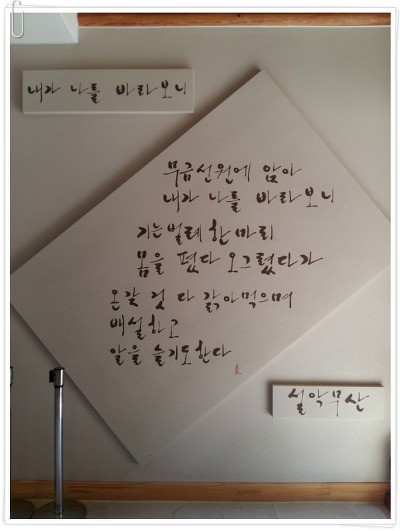 내가 나를 바라보니
무금선원에 앉아
내가 나를 바라보니
기는 벌레 한 마리
몸을 폈다 오그렸다가
온갖 것 다 갉아먹으며
배설하고
알을 슬기도 한다
설악무산